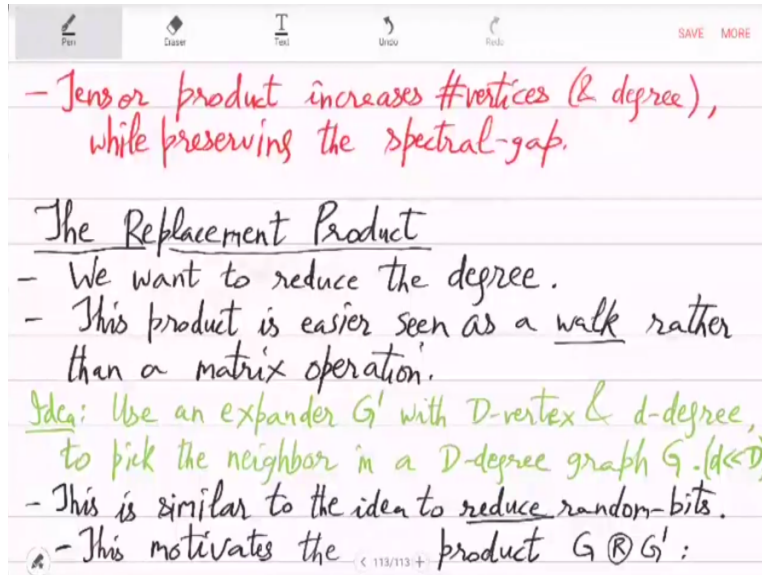 Pen Eraser Text Undo Redo SAVE MORE
- Tensor product increases #vertices (& degree),
while preserving the spectral-gap.
The Replacement Product
- We want to reduce the degree.
- This product is easier seen as a walk rather
than a matrix operation.
Idea: Use an expander G' with D-vertex & d-degree,
to pick the neighbor in a D-degree graph G. (d<<D)
- This is similar to the idea to reduce random-bits.
- This motivates the product G Ⓡ G':
< 113/113 +